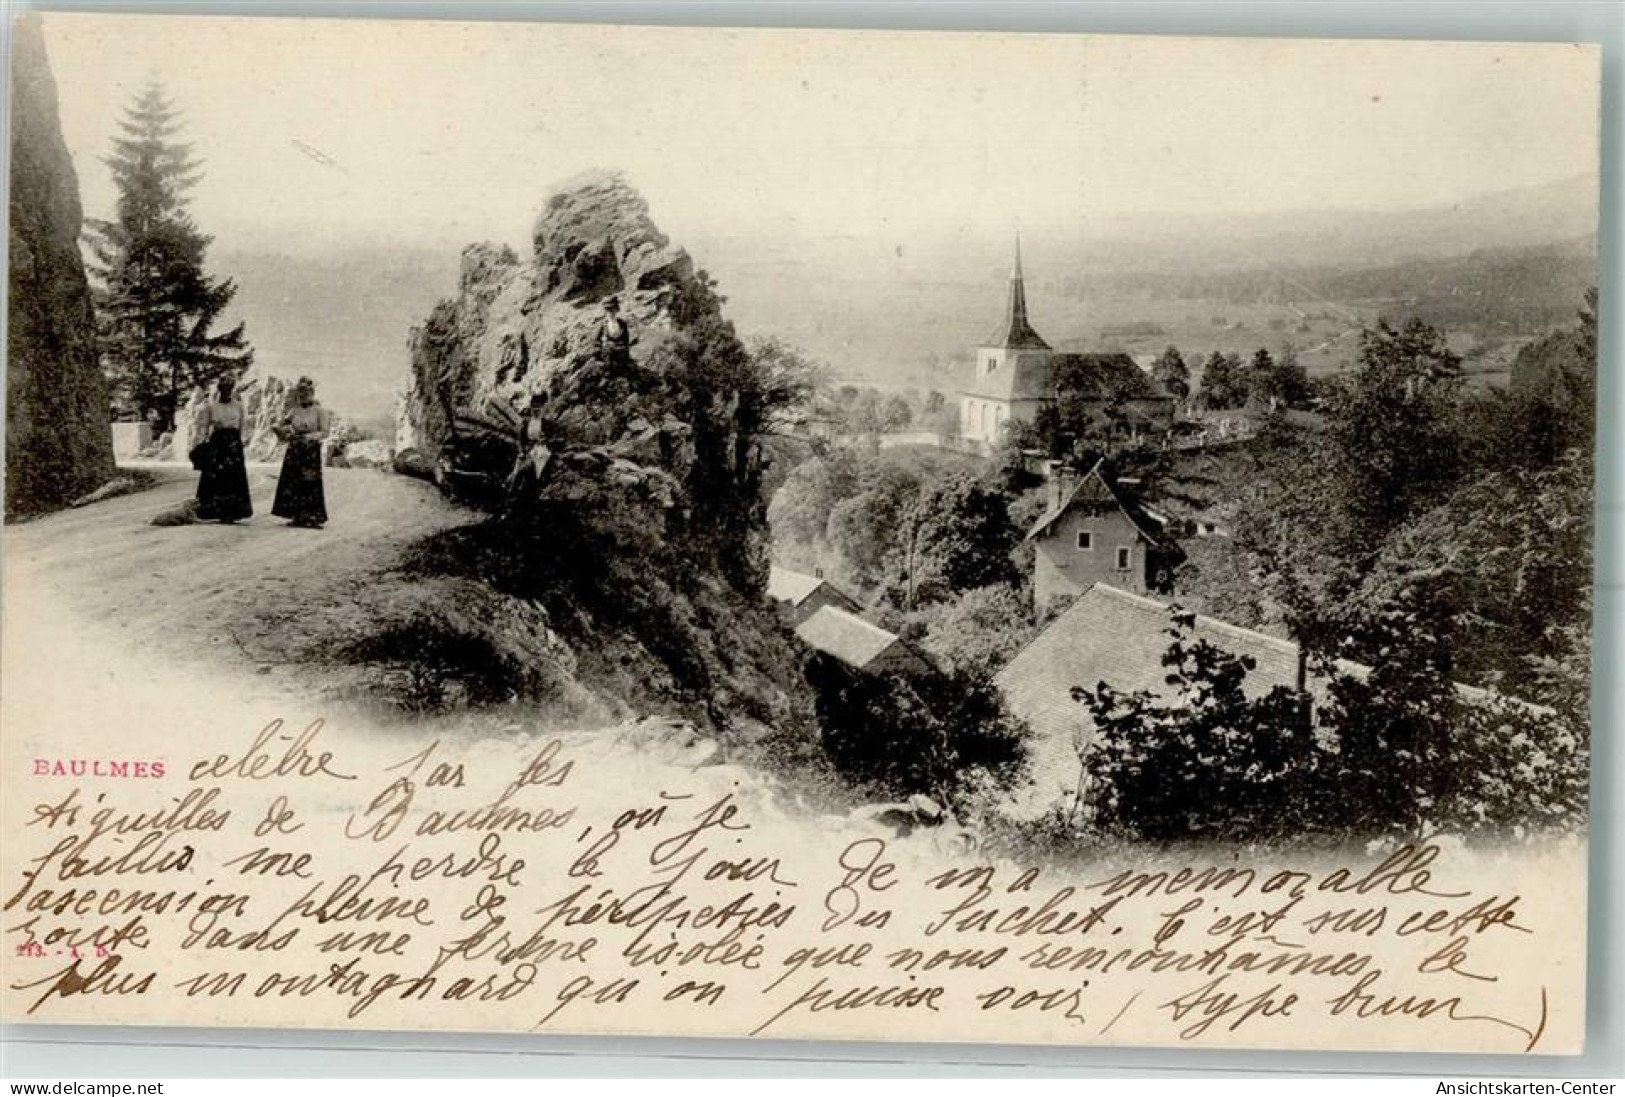 BAULMES célèbre par les
Aiguilles de Baulmes, où je
faillis me perdre le jour de ma memorable
ascension pleine de péripéties du Suchet. C'est sur cette
route dans une ferme isolée que nous rencontrâmes le
213. - A. D.
plus montagnard qu'on puisse voir (type brun)
delcampe.net
Ansichtskarten-Center